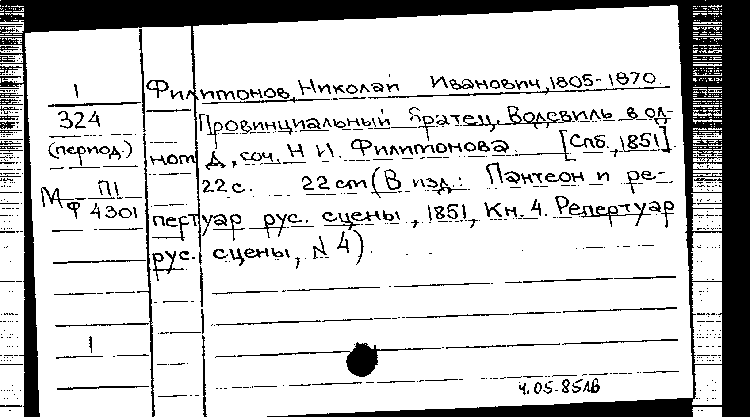 1
324
(период.)
МФ П1 4301
1
Филимонов, Николай Иванович, 1805-1870
Провинциальный братец. Водевиль в од-
ном д., соч. Н И. Филимонова. [Спб., 1851]
22 с. 22 cm (В изд: Пантеон и ре-
пертуар рус. сцены, 1851, Кн. 4. Репертуар
рус. сцены, № 4).